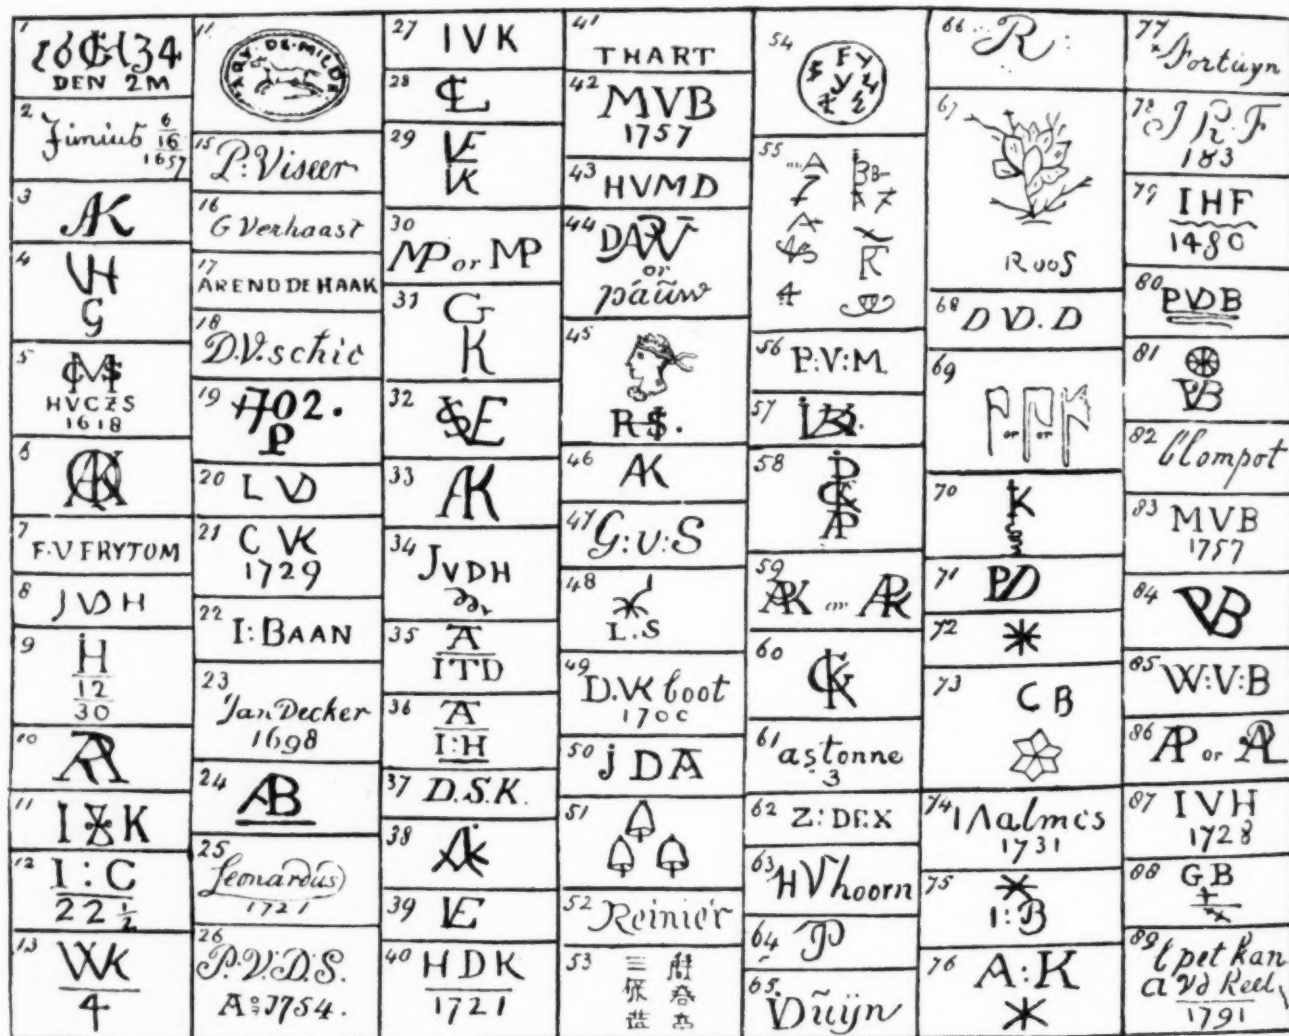 1
16 GH 34
DEN 2M
2
Junius 6
16
1657
3
AK
4
VH
G
5
HVCZS
1618
6
7
F·V FRYTOM
8
J VD H
9
iH
12
30
10
AR
11
I K
12
I : C
22 1/2
13
WK
4
11
ARY·DE·MILDE
15
P: Viseer
16
G Verhaast
17
AREND DE HAAK
18
D.V. schie
19
1702.
P
20
L VD
21
C VK
1729
22
I: BAAN
23
Jan Decker
1698
24
AB
25
Leonardus
1721
26
P.V.D.S.
A:o 1754.
27
IVK
28
CL
29
VE
VK
30
MP or MP
31
G
K
32
SVE
33
AK
34
JVDH
35
A
ITD
36
A
I:H
37
D.S.K.
38
AiK
39
VE
40
HDK
1721
41
THART
42
MVB
1757
43
HVMD
44
DAPW
or
páuw
45
R·S.
46
AK
47
G:v:S
48
L.S
49
D.VK boot
1700
50
j D A
51
52
Reinier
53
54
55
56
P:V:M.
57
58
iD
CK
AP
59
APK or APK
60
CGK
61
astonne
3
62
Z: DEX
63
HVhoorn
64
P
65
V Duijn
66
R:
67
Roos
68
D VD. D
69
or or
70
K
71
PD
72
73
C B
74
I Aalmes
1731
75
I:B
76
A:K
77
Fortuyn
78
J R·F
183
79
IHF
1480
80
PVDB
81
VB
82
Clompot
83
MVB
1757
84
PVB
85
W:V:B
86
AP or APL
87
IVH
1728
88
GB
89
t pet kan
a vd Keel
1791